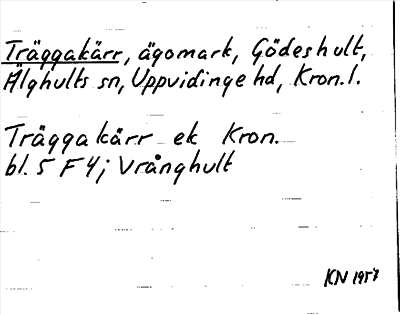 Träggakärr, ägomark, Gödeshult,
Älghults sn, Uppvidinge hd, Kron. l.
Träggakärr ek Kron.
bl. 5 F 4; Vrånghult
KN 1958